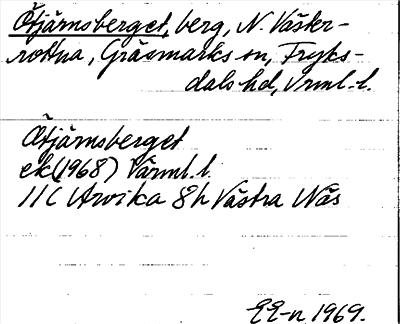 Åtjärnsberget, berg, N. Väster-
rottna, Gräsmarks sn, Fryks-
dals hd, Vrml. l.
Åtjärnsberget
ek (1968) Värml. l.
11C Arvika 8h Västra Näs
EE-n 1969.